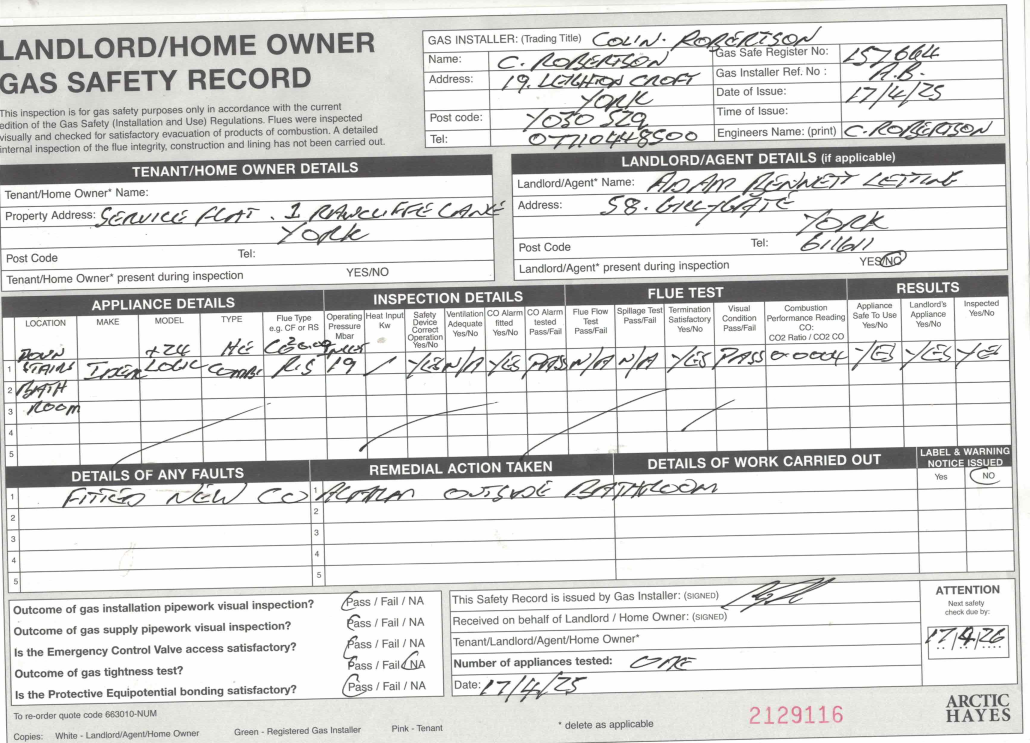 LANDLORD/HOME OWNER
GAS SAFETY RECORD
This Inspection is for gas safety purposes only in accordance with the current
edition of the Gas Safety (Installation and Use) Regulations. Flues were inspected
visually and checked for satisfactory evacuation of products of combustion. A detailed
internal inspection of the flue integrity, construction and lining has not been carried out.
GAS INSTALLER: (Trading Title) COLIN. ROBERTSON
Name: C. ROBERTSON
Gas Safe Register No: 157664
Address: 19. LEIGHTON CROFT
Gas Installer Ref. No :
YORK
Date of Issue: 17/4/25
Post code: YO30 5ZQ
Time of Issue:
Tel: 07710448500
Engineers Name: (print) C. ROBERTSON
TENANT/HOME OWNER DETAILS
Tenant/Home Owner* Name:
Property Address: SERVICE FLAT . 1 RAWCLIFFE LANE
YORK
Post Code Tel:
Tenant/Home Owner* present during inspection YES/NO
LANDLORD/AGENT DETAILS (if applicable)
Landlord/Agent* Name: ADAM BENNETT LETTING
Address: 58. GILLYGATE
YORK
Post Code Tel: 611611
Landlord/Agent* present during inspection YES/NO
APPLIANCE DETAILS INSPECTION DETAILS FLUE TEST RESULTS
LOCATION MAKE MODEL TYPE Flue Type e.g. CF or RS Operating Pressure Mbar Heat Input Kw Safety Device Correct Operation Yes/No Ventilation Adequate Yes/No CO Alarm fitted Yes/No CO Alarm tested Pass/Fail Flue Flow Test Pass/Fail Spillage Test Pass/Fail Termination Satisfactory Yes/No Visual Condition Pass/Fail Combustion Performance Reading CO: CO2 Ratio / CO2 CO Appliance Safe To Use Yes/No Landlord's Appliance Yes/No Inspected Yes/No
DOWN +24 HE
1 STAIRS LOGIC COMBI R.S 19 / YES N/A YES PASS N/A N/A YES PASS 0.0004 YES YES YES
2 BATH
3 ROOM
4
5
DETAILS OF ANY FAULTS REMEDIAL ACTION TAKEN DETAILS OF WORK CARRIED OUT LABEL & WARNING NOTICE ISSUED
Yes NO
1 FITTED NEW CO 1 ALARM OUTSIDE BATHROOM
2 2
3 3
4 4
5 5
Outcome of gas installation pipework visual inspection? Pass / Fail / NA
Outcome of gas supply pipework visual inspection? Pass / Fail / NA
Is the Emergency Control Valve access satisfactory? Pass / Fail / NA
Outcome of gas tightness test? Pass / Fail / NA
Is the Protective Equipotential bonding satisfactory? Pass / Fail / NA
This Safety Record is issued by Gas Installer: (SIGNED)
Received on behalf of Landlord / Home Owner: (SIGNED)
Tenant/Landlord/Agent/Home Owner*
Number of appliances tested: ONE
Date: 17/4/25
ATTENTION
Next safety
check due by:
17/4/26
To re-order quote code 663010-NUM
Copies: White - Landlord/Agent/Home Owner Green - Registered Gas Installer Pink - Tenant
* delete as applicable
2129116
ARCTIC
HAYES